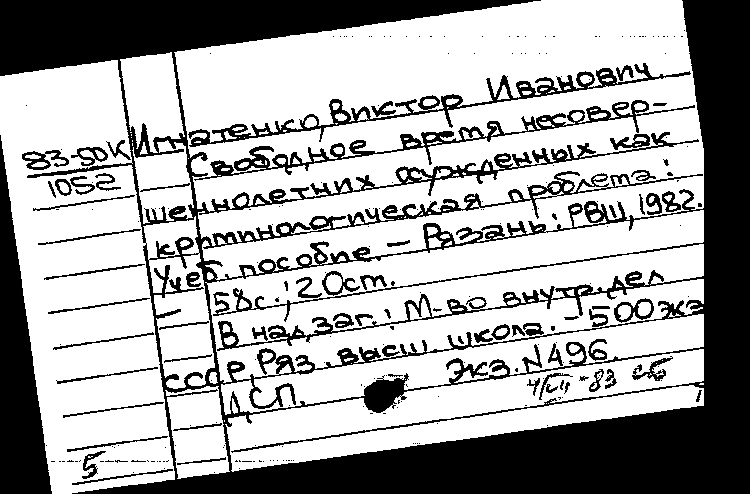 83-50К
1052
Игнатенко, Виктор Иванович.
Свободное время несовер-
шеннолетних осужденных как
криминологическая проблема:
Учеб. пособие. – Рязань: РВШ, 1982.
– 58с.; 20см.
В надзаг.: М-во внутр. дел
СССР, Ряз. высш. школа. – 500экз
Экз. N496.
ДСП.
5